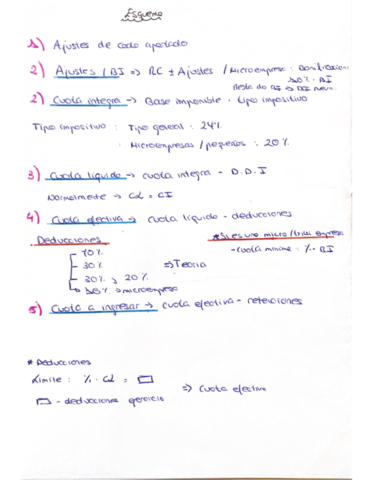 Esquema
1) Ajustes de cada apartado
2) Ajustes / BI => RC ± Ajustes / Microempresa: Bonificacion:
30% · BI
Resto de BI => BI
2) Cuota integra -> Base imponible · tipo impositivo
Tipo impositivo: Tipo general: 24%
· Microempresas / pequeñas: 20%
3) Cuota liquida -> cuota integra - D.D.I
Normalmente -> CL = CI
4) Cuota efectiva -> cuota liquida - deducciones
Deducciones
* Si es una micro / empresa
- Cuota minima: % · BI
10%
30%
=> Teoria
30% y 20%
-> microempresa
5) Cuota a ingresar -> cuota efectiva - retenciones
* Deducciones
Limite: % · CL = ▭
=> Cuota efectiva
▭ - deducciones ejercicio